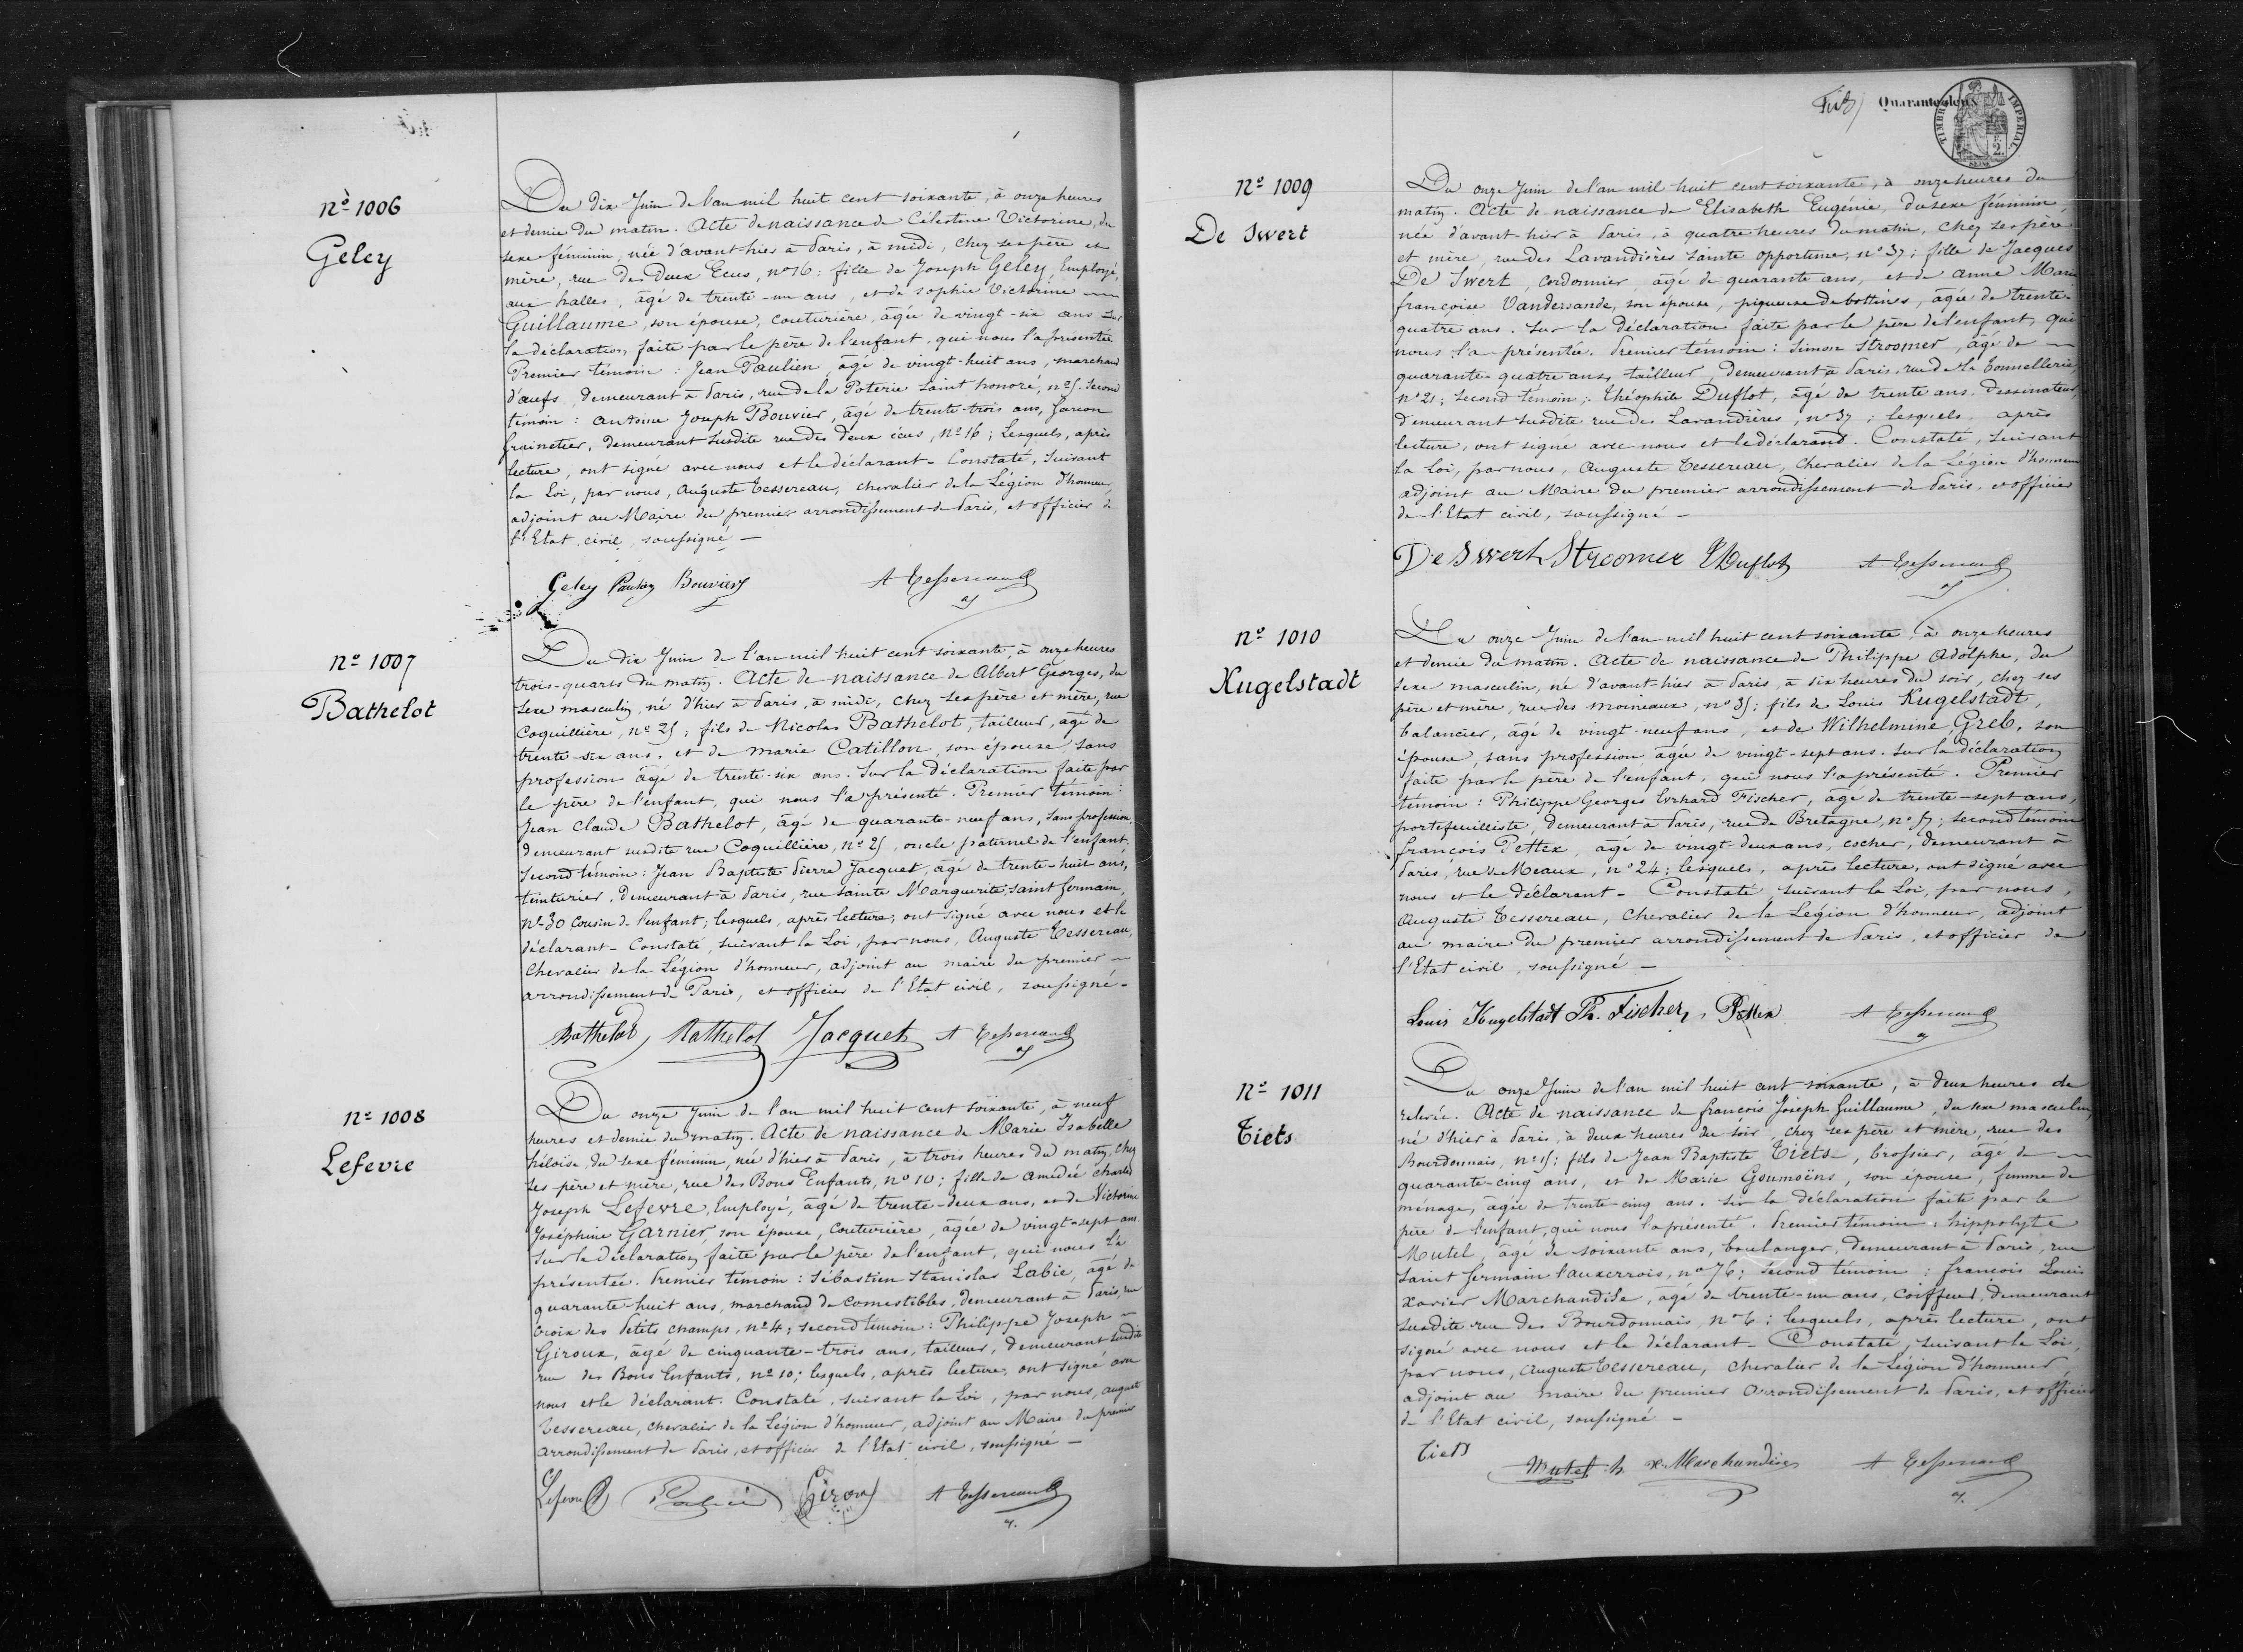 nº 1006
Geley
Du dix Juin de l'an mil huit cent soixante, à onze heures
et demie du matin. Acte de naissance de Célestine Victorine, du
sexe féminin, née d'avant-hier à Paris, à midi, chez ses père et
mère, rue des Deux Ecus, nº 16 : fille de Joseph Geley, Employé
aux halles, âgé de trente-un ans, et de Sophie Victorine
Guillaume, son épouse, couturière, âgée de vingt-six ans Sur
la déclaration, faite par le père de l'enfant, qui nous l'a présentée
Premier témoin : Jean Paulien, âgé de vingt-huit ans, marchand
d'œufs, demeurant à Paris, rue de la Poterie Saint honoré, nº 5. Second
témoin : Antoine Joseph Bouvier, âgé de trente-trois ans, Garçon
Grainetier, demeurant susdite rue des deux écus, Nº 16 ; Lesquels, après
lecture, ont signé avec nous et le déclarant - Constaté, Suivant
la Loi, par nous, Auguste Tessereau, chevalier de la Légion d'honneur,
adjoint au Maire du premier arrondissement de Paris, et officier de
l'Etat civil, soussigné —
Geley Paulien Bouvier A Tessereau
nº 1007
Bathelot
Du dix Juin de l'an mil huit cent soixante, à onze heures
trois-quarts du matin. Acte de naissance de Albert Georges, du
sexe masculin, né d'hier à Paris, à midi, chez ses père et mère, rue
Coquillière, nº 25 ; fils de Nicolas Bathelot, tailleur, âgé de
trente-six ans, et de Marie Catillon, son épouse, sans
profession âgé de trente-six ans. Sur la déclaration faite par
le père de l'enfant, qui nous l'a présenté. Premier témoin :
Jean Claude Bathelot, âgé de quarante-neuf ans, sans profession,
demeurant susdite rue Coquillière, nº 25, oncle paternel de l'enfant.
Second témoin : Jean Baptiste Pierre Jacquet, âgé de trente-huit ans,
teinturier, demeurant à Paris, rue Sainte Marguerite Saint Germain,
nº 30 cousin de l'enfant ; lesquels, après lecture, ont signé avec nous et le
déclarant - Constaté, suivant la Loi, par nous, Auguste Tessereau,
Chevalier de la Légion d'honneur, adjoint au maire du premier
arrondissement de Paris, et officier de l'Etat civil, soussigné -
Bathelot Bathelot Jacquet A Tessereau
nº 1008
Lefevre
Du onze Juin de l'an mil huit cent soixante, à neuf
heures et demie du matin. Acte de naissance de Marie Isabelle
héloïse, du sexe féminin, née d'hier à Paris, à trois heures du matin, chez
ses père et mère, rue des Bons Enfants, nº 10 ; fille de Amédée Charles
Joseph Lefevre, Employé, âgé de trente-deux ans, et de Victorine
Joséphine Garnier, son épouse, couturière, âgée de vingt-sept ans
Sur la déclaration faite par le père de l'enfant, qui nous l'a
présentée. Premier témoin : Sébastien Stanislas Labie, âgé de
quarante-huit ans, marchand de comestibles, demeurant à Paris, rue
croix des Petits champs, nº 4 ; second témoin : Philippe Joseph
Giroux, âgé de cinquante-trois ans, tailleur, demeurant susdite
rue des Bons Enfants, nº 10 ; lesquels, après lecture, ont signé avec
nous et le déclarant. Constaté, suivant la Loi, par nous, Auguste
Tessereau, chevalier de la Légion d'honneur, adjoint au Maire du premier
arrondissement de Paris, et officier de l'Etat civil, soussigné —
Lefevre Labie Giroux A Tessereau
Quarante-deux
TIMBRE IMPÉRIAL
SEINE
2.
nº 1009
De Swert
Du onze Juin de l'an mil huit cent soixante, à onze heures du
matin. Acte de naissance de Elisabeth Eugénie, du sexe féminin,
née d'avant-hier à Paris, à quatre heures du matin, chez ses père
et mère, rue des Lavandières Sainte opportune, nº 37 ; fille de Jacques
De Swert, cordonnier, âgé de quarante ans, et de Anne Marie
françoise Vandersande, son épouse, piqueuse de bottines, âgée de trente-
quatre ans. Sur la déclaration faite par le père de l'enfant, qui
nous l'a présentée. Premier témoin : Simon Stroomer, âgé de
quarante-quatre ans, tailleur, demeurant à Paris, rue de la Tonnellerie,
nº 21 ; Second témoin : Théophile Duflot, âgé de trente ans, Dessinateur,
demeurant susdite rue des Lavandières, nº 37 ; lesquels, après
lecture, ont signé avec nous et le déclarant. Constaté, suivant
la Loi, par nous, Auguste Tessereau, Chevalier de la Légion d'honneur
adjoint au Maire du premier arrondissement de Paris, et officier
de l'Etat civil, soussigné —
De Swert Stroomer Duflot A Tessereau
nº 1010
Kugelstadt
Du onze Juin de l'an mil huit cent soixante, à onze heures
et demie du matin. Acte de naissance de Philippe Adolphe, du
sexe masculin, né d'avant-hier à Paris, à six heures du soir, chez ses
père et mère, rue des Moineaux, nº 35 ; fils de Louis Kugelstadt,
balancier, âgé de vingt-neuf ans, et de Wilhelmine Greb, son
épouse, sans profession, âgée de vingt-sept ans. Sur la déclaration
faite par le père de l'enfant, qui nous l'a présenté. Premier
témoin : Philippe Georges Evrhard Fischer, âgé de trente-sept ans,
portefeuilliste, demeurant à Paris, rue de Bretagne, nº 57 ; second témoin
françois Pettex, âgé de vingt-deux ans, cocher, demeurant à
Paris, rue de Meaux, nº 24 ; lesquels, après lecture, ont signé avec
nous et le déclarant - Constaté, suivant la Loi, par nous,
Auguste Tessereau, Chevalier de la Légion d'honneur, adjoint
au maire du premier arrondissement de Paris, et officier de
l'Etat civil, soussigné —
Louis Kugelstadt Ph. Fischer, Pettex A Tessereau
nº 1011
Tiets
Du onze Juin de l'an mil huit cent soixante, à deux heures de
relevée. Acte de naissance de françois Joseph Guillaume, du sexe masculin,
né d'hier à Paris, à deux heures du soir, chez ses père et mère, rue des
Bourdonnais, nº 15 ; fils de Jean Baptiste Tiets, brossier, âgé de
quarante-cinq ans, et de Marie Goumoëns, son épouse, femme de
ménage, âgée de trente-cinq ans. Sur la déclaration faite par le
père de l'enfant, qui nous l'a présenté. Premier témoin : hippolyte
Mutel, âgé de soixante ans, boulanger, demeurant à Paris, rue
Saint Germain l'auxerrois, nº 76 ; second témoin : françois Louis
Xavier Marchandise, âgé de trente-un ans, coiffeur, demeurant
susdite rue des Bourdonnais, nº 6 ; lesquels, après lecture, ont
signé avec nous et le déclarant - Constaté, suivant la Loi,
par nous, Auguste Tessereau, Chevalier de la Légion d'honneur,
adjoint au maire du premier arrondissement de Paris, et officier
de l'Etat civil, soussigné —
Tiets Mutel h x. Marchandise A Tessereau